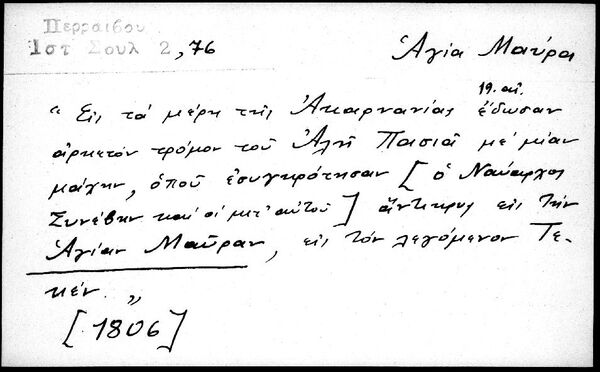 Περραιβου
Ιστ Σουλ 2, 76
Ἁγία Μαύρα
19. αἰ.
"Εἰς τά μέρη τῆς Ἀκαρνανίας ἔδωσαν
ἀρκετόν τρόμον τοῦ Ἀλῆ Πασιᾶ μέ μίαν
μάχην, ὁποῦ ἐσυγκρότησαν [ὁ Ναύαρχος
Συνέβην καί οἱ μετ' αὐτοῦ] ἄντικρυς εἰς τήν
Ἁγίαν Μαῦραν, εἰς τόν λεγόμενον Τε-
κέν."
[1806]